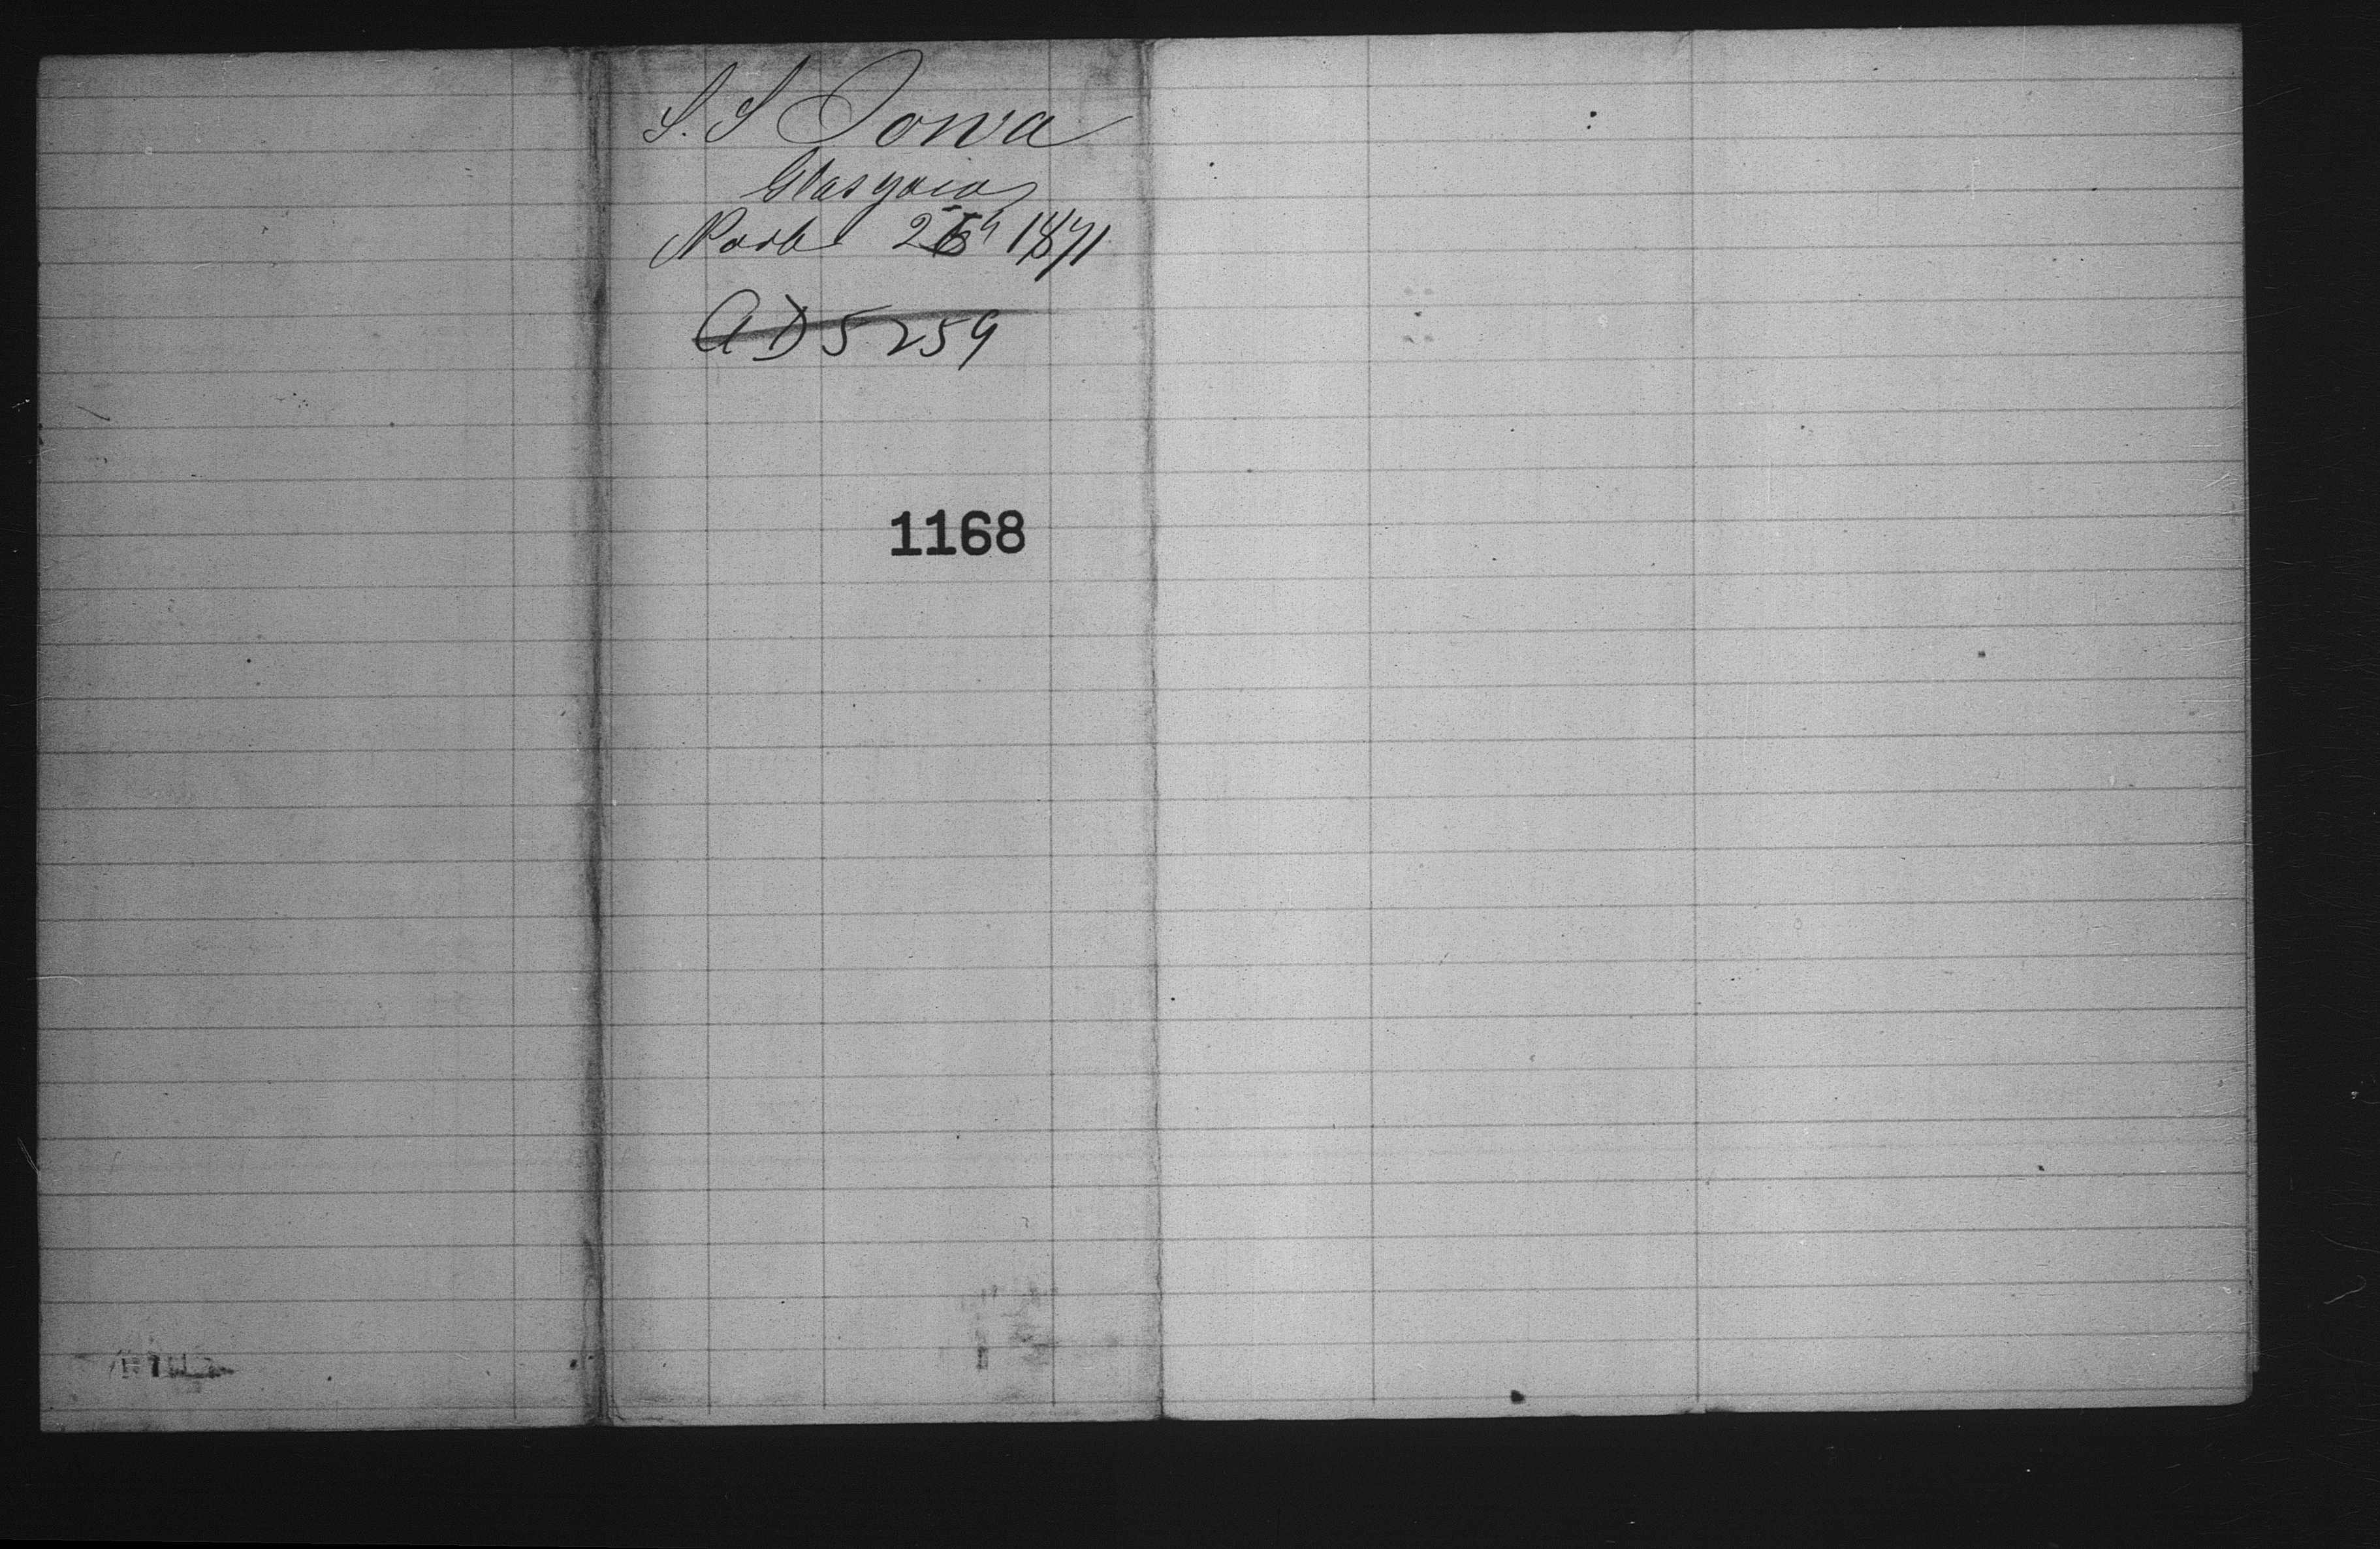 S.S Iowa
Glasgow
Novbr 25th 1871
AD 5259
1168